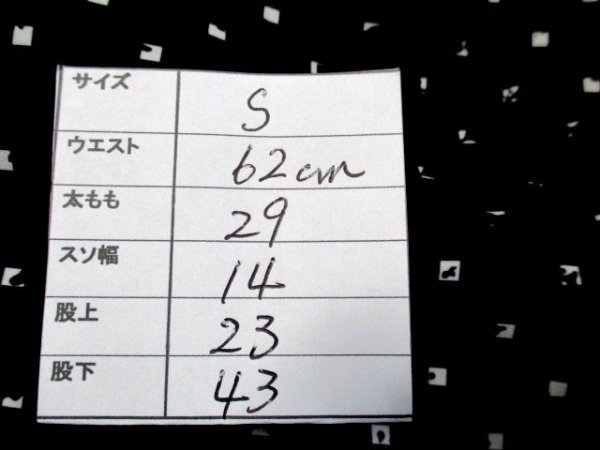 サイズ S
ウエスト 62cm
太もも 29
スソ幅 14
股上 23
股下 43